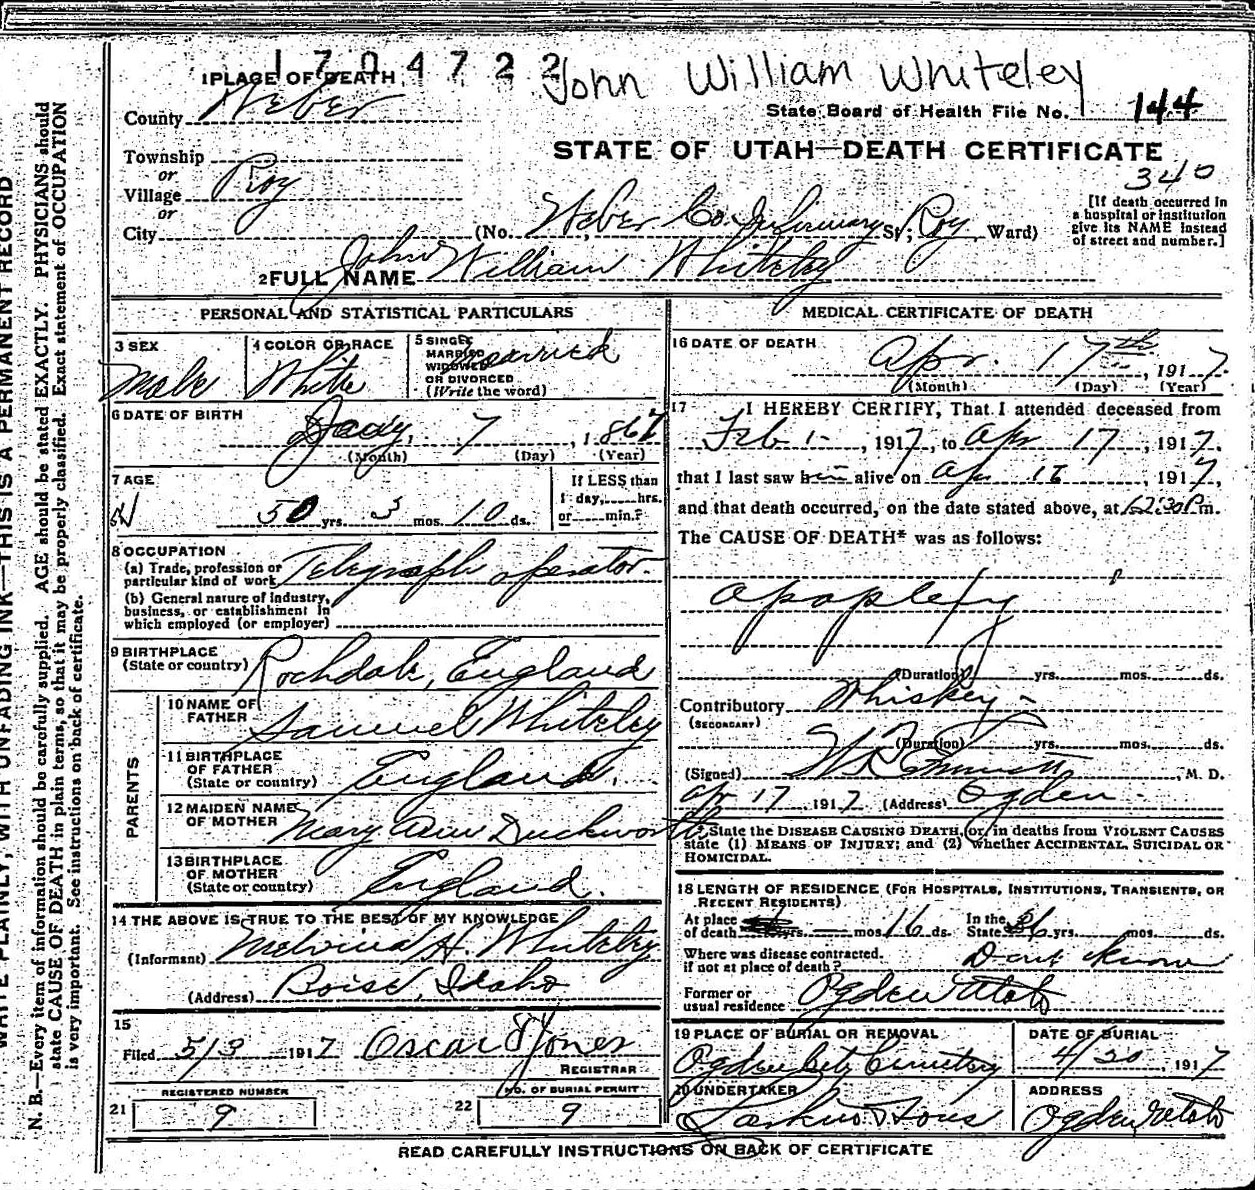 1704722
John William Whiteley
1 PLACE OF DEATH
State Board of Health File No. 144
County Weber
STATE OF UTAH—DEATH CERTIFICATE
340
Township
or
Village Roy
or
City (No. Weber Co. Infirmary St; Roy Ward)
[If death occurred in
a hospital or institution
give its NAME instead
of street and number.]
2 FULL NAME John William Whiteley
PERSONAL AND STATISTICAL PARTICULARS
3 SEX
Male
4 COLOR OR RACE
White
5 SINGLE
MARRIED
WIDOWED
OR DIVORCED
(Write the word)
Married
6 DATE OF BIRTH
7, 1867
(Month) (Day) (Year)
7 AGE
50 yrs. 3 mos. 10 ds.
If LESS than
1 day, hrs.
or min.?
8 OCCUPATION
(a) Trade, profession or
particular kind of work Telegraph operator.
(b) General nature of industry,
business, or establishment in
which employed (or employer)
9 BIRTHPLACE
(State or country) Rochdale, England
PARENTS
10 NAME OF
FATHER Samuel Whiteley
11 BIRTHPLACE
OF FATHER
(State or country) England.
12 MAIDEN NAME
OF MOTHER Mary Ann Duckworth
13 BIRTHPLACE
OF MOTHER
(State or country) England.
14 THE ABOVE IS TRUE TO THE BEST OF MY KNOWLEDGE
(Informant) Melvina H. Whiteley
(Address) Boise, Idaho
15
Filed 5/3 1917 Oscar Jones
REGISTRAR
REGISTERED NUMBER
21 9
NO. OF BURIAL PERMIT
22 9
MEDICAL CERTIFICATE OF DEATH
16 DATE OF DEATH
Apr. 17th, 1917.
(Month) (Day) (Year)
17 I HEREBY CERTIFY, That I attended deceased from
Feb 1-, 1917, to Apr 17, 1917,
that I last saw him alive on Apr 16, 1917,
and that death occurred, on the date stated above, at 12:30 P.m.
The CAUSE OF DEATH* was as follows:
Apoplexy
(Duration) yrs. mos. ds.
Contributory Whiskey -
(SECONDARY)
(Duration) yrs. mos. ds.
(Signed) , M. D.
Apr 17, 1917 (Address) Ogden.
State the DISEASE CAUSING DEATH, or, in deaths from VIOLENT CAUSES
state (1) MEANS OF INJURY; and (2) whether ACCIDENTAL, SUICIDAL OR
HOMICIDAL.
18 LENGTH OF RESIDENCE (FOR HOSPITALS, INSTITUTIONS, TRANSIENTS, OR
RECENT RESIDENTS)
At place
of death yrs. mos. 16 ds.
In the
State 36 yrs. mos. ds.
Where was disease contracted.
if not at place of death? Dont know
Former or
usual residence Ogden Utah
19 PLACE OF BURIAL OR REMOVAL
Ogden City Cemetery
DATE OF BURIAL
4/20, 1917
20 UNDERTAKER
Larkin & Sons
ADDRESS
Ogden, Utah
READ CAREFULLY INSTRUCTIONS ON BACK OF CERTIFICATE
WRITE PLAINLY, WITH UNFADING INK—THIS IS A PERMANENT RECORD
N. B.—Every item of information should be carefully supplied. AGE should be stated EXACTLY. PHYSICIANS should
state CAUSE OF DEATH in plain terms, so that it may be properly classified. Exact statement of OCCUPATION
is very important. See instructions on back of certificate.